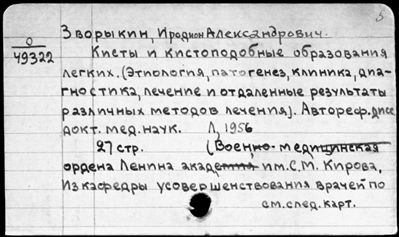 5
Зворыкин, Иродион Александрович.
О
49322
Кисты и кистоподобные образования
легких. (Этиология, патогенез, клиника, диа-
гностика, лечение и отдаленные результаты
различных методов лечения). Автореф. дисс
докт. мед. наук. Л, 1956
27 стр. (Военно-медицинская
ордена Ленина академия им. С.М. Кирова,
Из кафедры усовершенствования врачей по
см. след. карт.